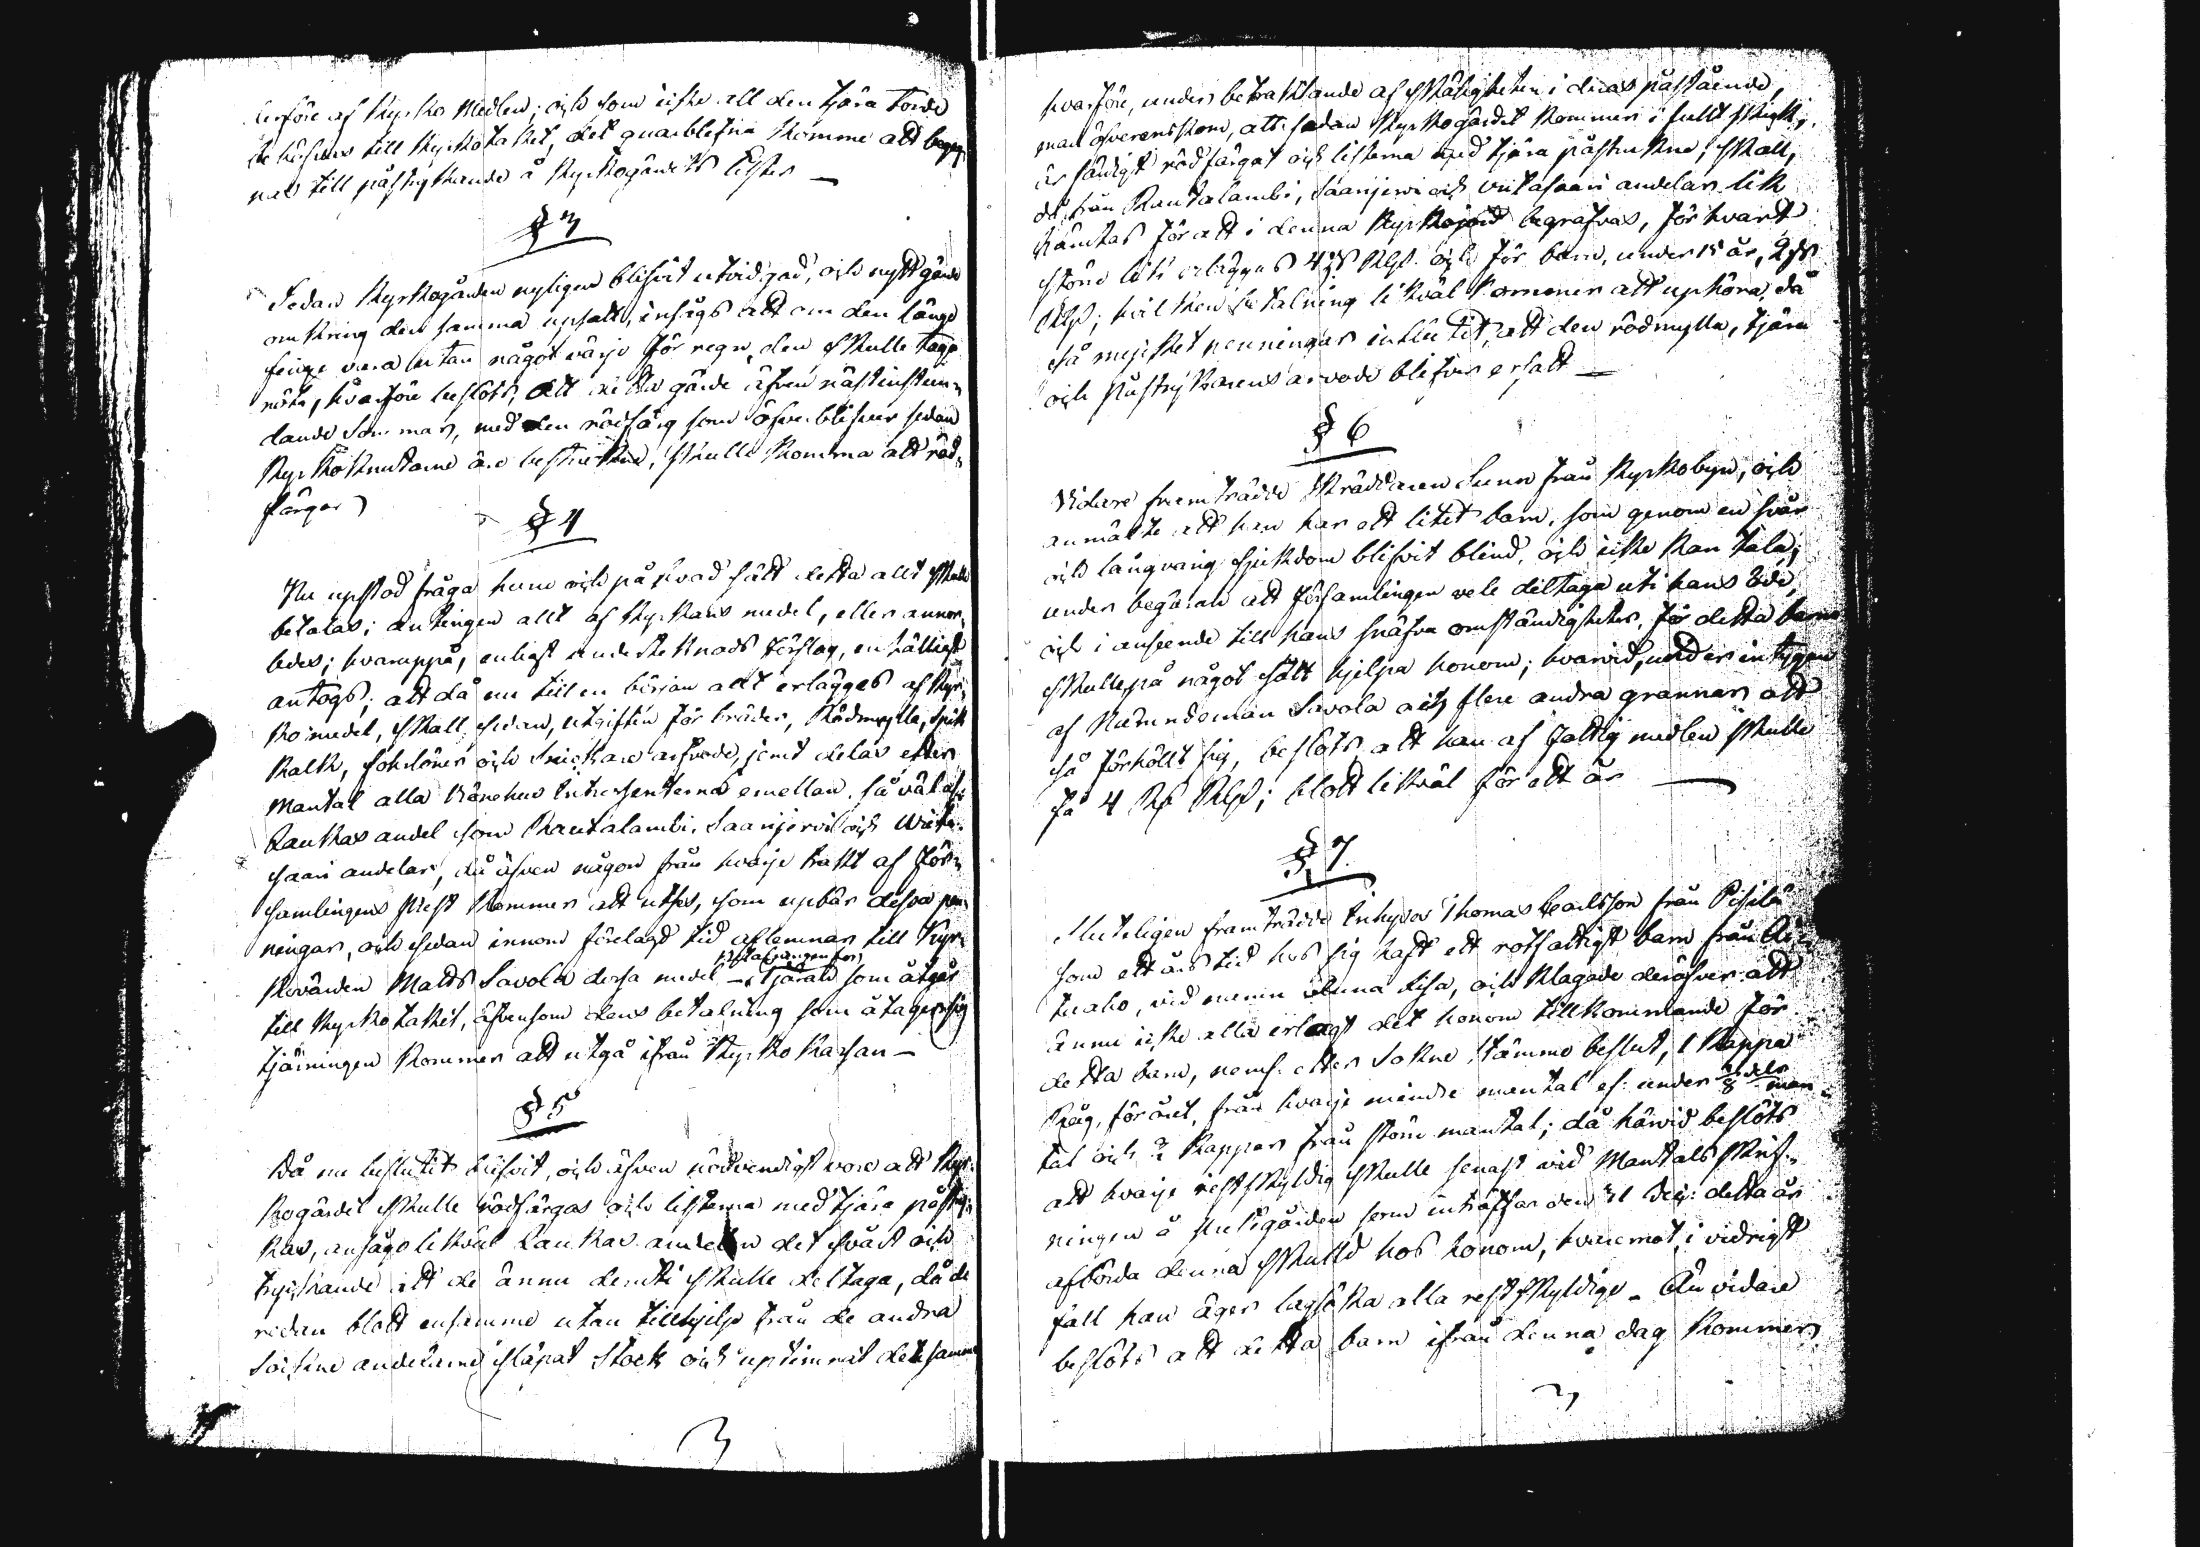 derföre af Kyrko Medlen; och som icke all den tjära torde
behöfvas till Kyrkotaket, det quarblefna komme att begag-
nas till påstrykande å Kyrkogårdets lister —
§ 3
Sedan Kyrkogården nyligen blifvit utvidgad, och nytt gärde
omkring den samma upsatt, insågs att om den länge
finge vara utan något värje för regn, den skulle taga
röta, hvarföre beslöts, att detta gärde äfven nästinstun-
dande Sommar, med den rödfärg som öfverblifver sedan
Kyrkoknutarne äro bestrukne, skulle komma att röd-
färgas
§ 4
Nu upstod fråga huru och på hvad sätt detta allt skulle
betalas; antingen allt af Kyrkans medel, eller annor-
ledes; hvaruppå, enligt undertecknads förslag, enhälligt
antogs; att då nu till en början allt erlägges af Kyr-
komedel, skall sedan, utgiften för bräder, Rödmylla, Spik
Kalk, forlöner och Snickare arfvode, jemt delas efter
Mantal alla Bönehus Intressenterna emellan, så väl af
Laukas andel som Rautalambi, Saarijervi och Wiita-
saari andelar, då äfven någon från hvarje trakt af För-
samlingens skall kommer att utses, som upbär dessa pen-
ningar, och sedan innom förelagd tid aflemnar till Kyr-
kovärden Matts Savola dessa medel — Tjäran som åtgår
till Kyrko taket, äfvensom dens betalning som åtager sig
tjärningen kommer att utgå ifrån Kyrko Kassan —
§ 5
Då nu beslutit blifvit, och äfven nödvendigt vore att Kyr-
kogårdet skulle rödfärgas och listerna med tjära påstry-
kas, ansågo likväl Laukas andelen det svårt och
tryckande att de ännu deruti skulle deltaga, då de
redan blott ensamme utan tillhjelp från de andra
Sockne andelarne släpat Stock och uptimrat detsamma
hvarföre, under betraktande af skäligheten i deras påstående,
man öfverenskom, att sedan Kyrkogårdet kommer i fullt skick;
är färdigt rödfärgat och listerna med tjära påstrukne; skall,
då från Rautalambi, Saarijervi och viitasaari andelar lik
hämtas för att i denna Kyrkojord begrafvas, för hvart
större lik erläggas 4 Rbs. och för barn, under 15 år, 2
Rbs; hvilken betalning likväl kommer att uphöra, då
så mycket penningar influtit, att den rödmylla, tjära
och påstrykarens arvode blifver ersatt —
§ 6
Vidare framträdde Skräddaren Sunn från Kyrkobyn, och
anmälte att han har ett litet barn, som genom en svår
och långvarig sjukdom blifvit blind, och icke kan tala;
under begäran att församlingen vele deltaga uti hans öde,
och i anseende till hans knäfva omständigheter, för detta barn
skulle på något sätt hjelpa honom; hvarvid, under intygan
af Nämndeman Savola och flere andra grannar att
så förhöllt sig, beslöts att han af fattig medlen skulle
få 4 Rbs; blott likväl för ett år —
§ 7
Sluteligen framträdde Inhyses Thomas Carlsson från Pifilä
som ett års tid hos sig haft ett rotfattigt barn från
tuaho, vid namn Anna Lisa, och klagade deröfver att
ännu icke alla erlagt det honom tillkommande för
detta barn, neml. efter Sokne stämmo beslut, 1 Kappa
Råg, för året, från hvarje mindre mantal ell. under 1/8 dels man-
tal och 2 Kappar från större mantal; då härvid beslöts
att hvarje restskyldig skulle senast vid Mantals skrif-
ningen å festgården som inträffar den 21 Dec: detta år
afbörda denna skulld hos honom, hvaremot, i vidrigt
fall han äger lagsöka alla restskyldige. An vidare
beslöts att detta barn ifrån denna dag kommer